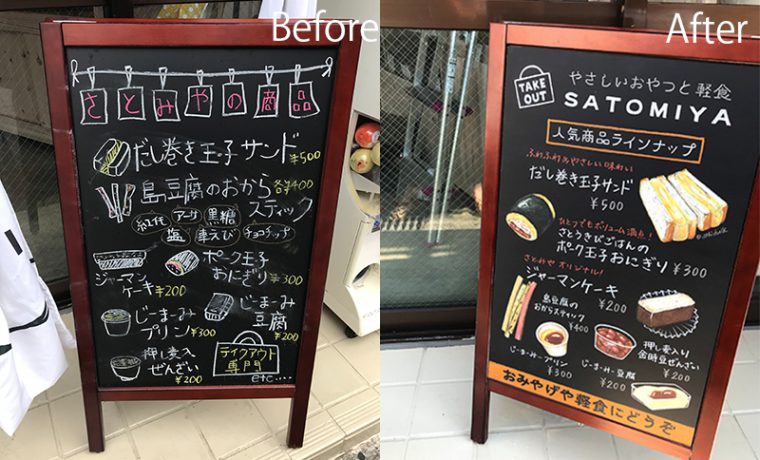 Before
さとみやの商品
だし巻き玉子サンド ¥500
島豆腐のおから 各¥400
スティック
紅花 アーサ 黒糖
塩 車えび チョコチップ
ジャーマン
ケーキ ¥200
ポーク玉子
おにぎり ¥300
じーまーみ
プリン ¥300
じーまーみ
豆腐
¥200
押し麦入
ぜんざい
¥200
テイクアウト
専門
etc....
After
TAKE
OUT
やさしいおやつと軽食
SATOMIYA
人気商品ラインナップ
ふわふわのやさしい味わい
だし巻き玉子サンド
¥500
ひとつでもボリューム満点!
さとうきびごはんの
ポーク玉子おにぎり ¥300
さとみやオリジナル!
ジャーマンケーキ
¥200
島豆腐の
おからスティック
¥400
じーまーみープリン
¥300
じーまーみー豆腐
¥200
押し麦入り
金時豆ぜんざい
¥200
おみやげや軽食にどうぞ